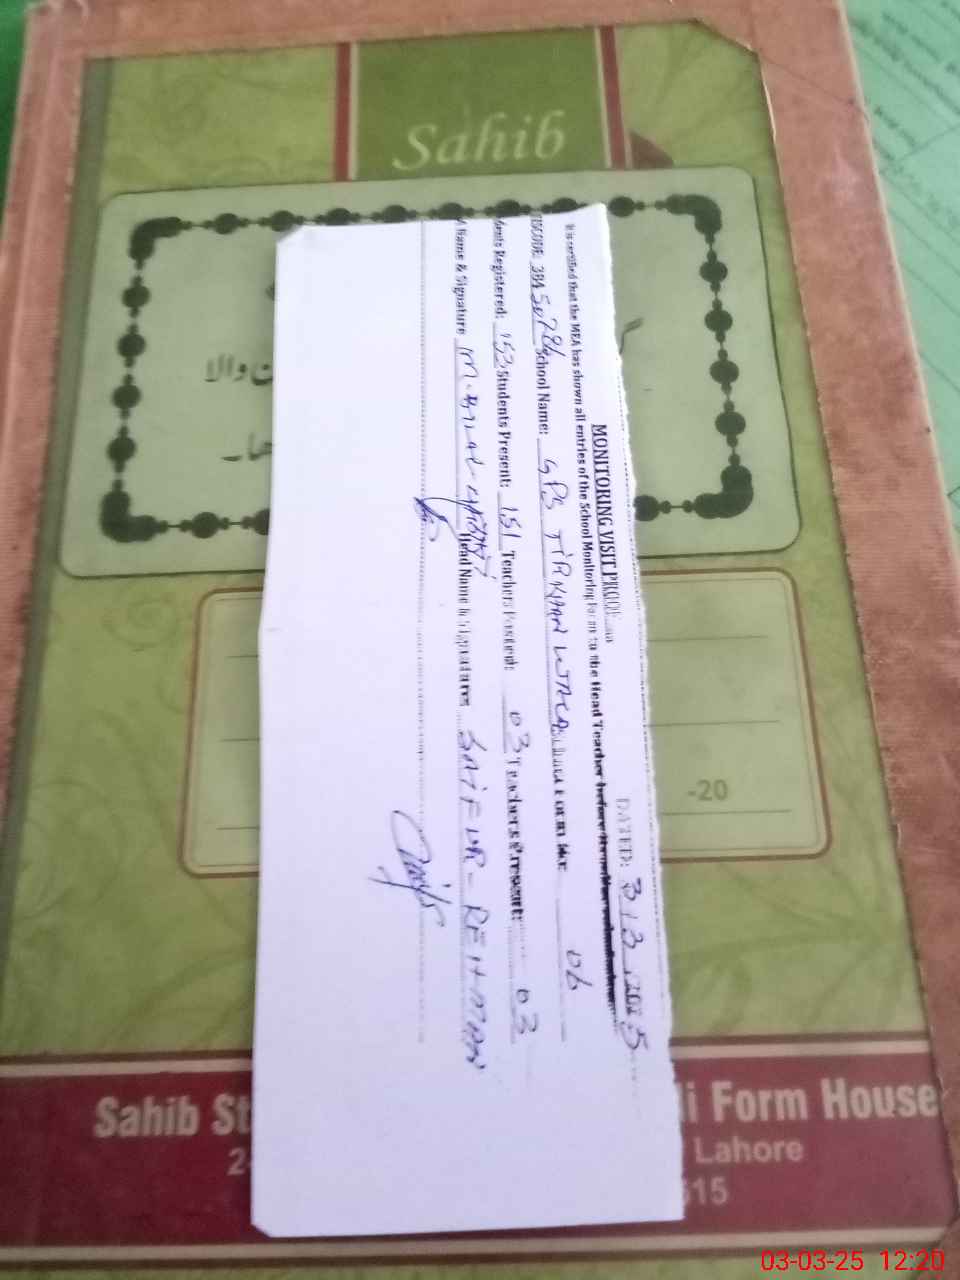 Sahib
ن والا
MONITORING VISIT PROOF
DATED: 3/3/2025
It is certified that the MEA has shown all entries of the School Monitoring Form to the Head Teacher before
School Name: GPS TIRKHAN WALA 06
Registered: 153 Students Present: 151 Teachers Posted: 03 Teachers Present: 03
Name & Signature M. Head Name & Signatures SAIF UR-REHMAN
-20
Sahib St
Form House
Lahore
03-03-25 12:20